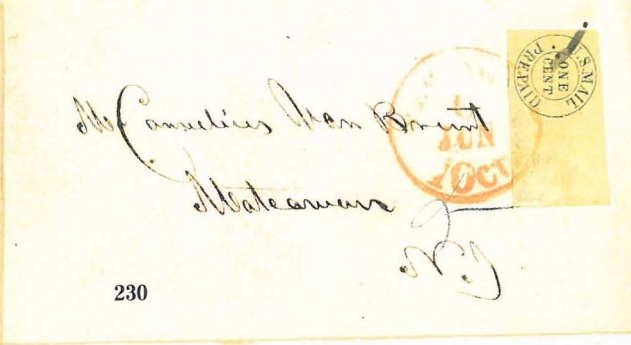 U.S. MAIL
ONE
CENT
PRE-PAID
JUN
10cts
Mr Cornelius Van Brunt
Mateawan
N.J
230